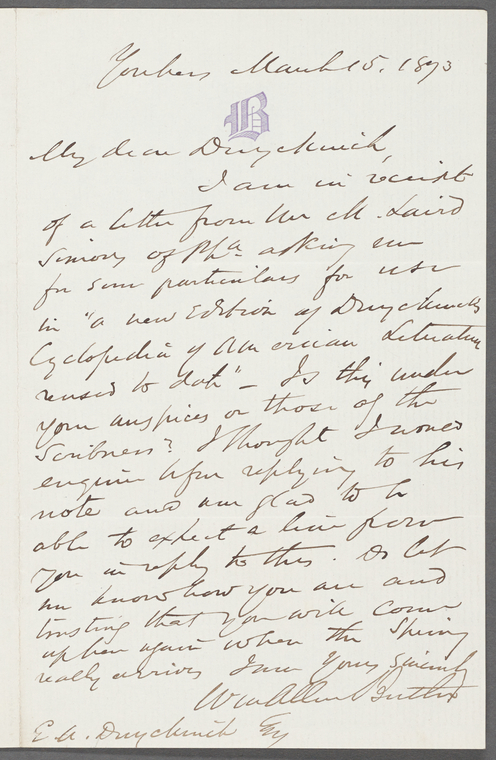 Yonkers March 15. 1873
B
My dear Duyckinck,
I am in receipt
of a letter from Mr M. Laird
Simons of Pha. asking me
for some particulars for use
in "a new Edition of Duyckinck's
Cyclopedia of American Literature
revised to date" - Is this under
your auspices or those of the
Scribners? I thought I would
enquire before replying to his
note and am glad to be
able to expect a line from
you in reply to this. Do let
me know how you are and
trusting that you will come
up here again when the Spring
really arrives I am Yours Sincerely
Wm Allen Butler
E. A. Duyckinck Esq